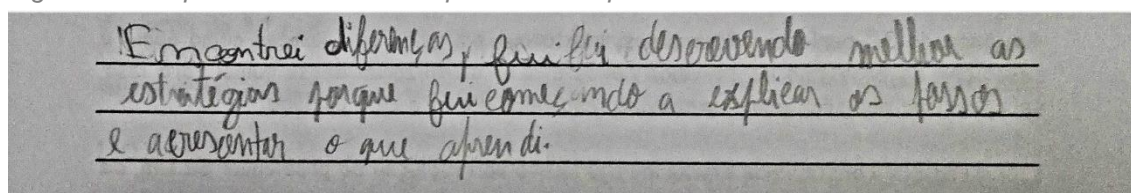 Encontrei diferenças, fui fui descrevendo melhor as
estratégias porque fui começando a explicar os passos
e acrescentar o que aprendi.